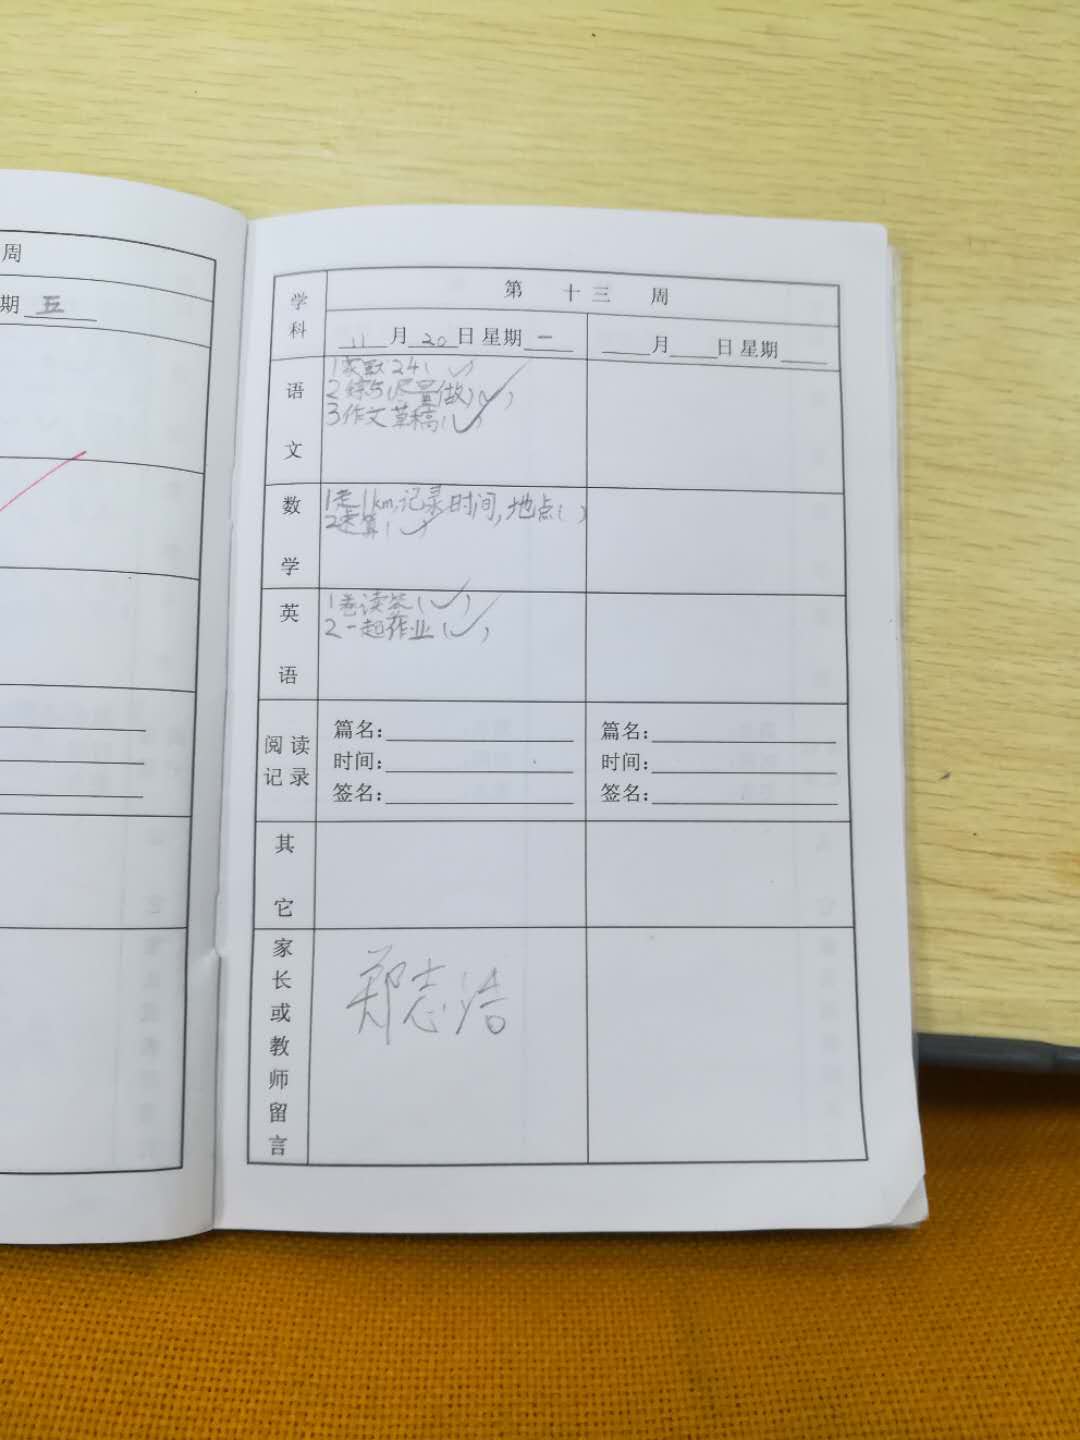 周
期 五
学科
第 十三 周
11 月 20 日 星期 一
月 日 星期
语文
1家默24( ✓ )
2综与(尽量做)( ✓ )
3作文草稿( ✓ )
数学
1走1km,记录时间,地点( )
2速算( ✓ )
英语
1卷读签( ✓ )
2一起作业( ✓ )
阅读记录
篇名:
时间:
签名:
篇名:
时间:
签名:
其它
家长或教师留言
郑志浩